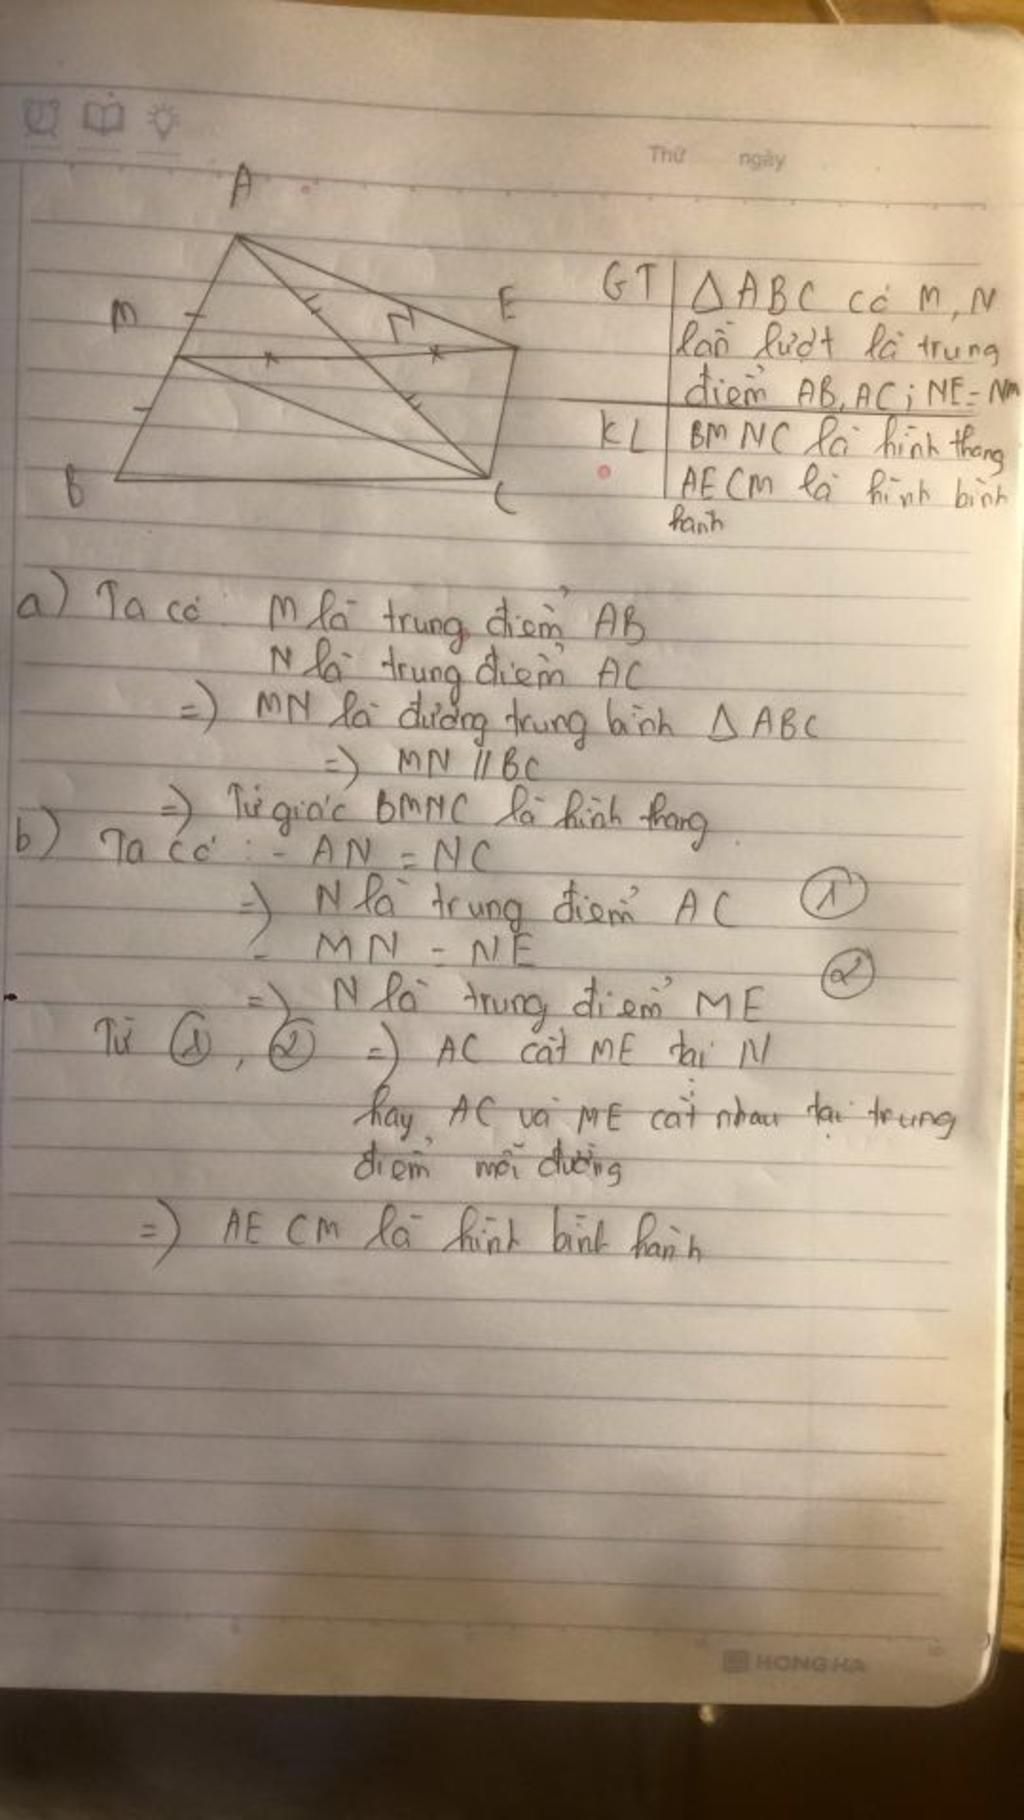 Thứ ngày
A
M
E
N
B
C
GT ΔABC có M, N
lần lượt là trung
điểm AB, AC; NE = NM
KL BMNC là hình thang
AECM là hình bình
hành
a) Ta có: M là trung điểm AB
N là trung điểm AC
=> MN là đường trung bình Δ ABC
=> MN // BC
=> Tứ giác BMNC là hình thang.
b) Ta có: - AN = NC
=> N là trung điểm AC ①
- MN = NE
=> N là trung điểm ME ②
Từ ①, ② => AC cắt ME tại N
hay AC và ME cắt nhau tại trung
điểm mỗi đường
=> AECM là hình bình hành
HONG HA